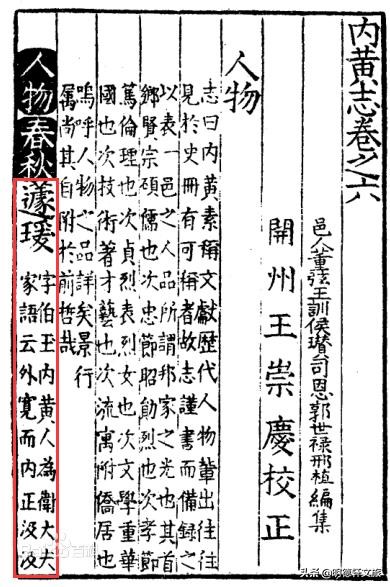 内黃志卷之六
邑人董弦王訓侯璡司恩郭世祿邢植編集
開州王崇慶校正
人物
志曰内黃素稱文獻歷代人物輩出往往
見於史冊有可稱者故志謹書而備録之
以表一邑之人品所謂邦家之光也其首
鄉賢宗碩儒也次忠節昭勛烈也次孝節
篤倫理也次貞烈表烈女也次文學重華
國也次技術著才藝也次流寓附僑居也
嗚呼人物之品詳矣景行
厲尚其自附於前哲哉
人物春秋蘧瑗
字伯玉内黃人為衛大夫
家語云外寬而内正汲汲
头条